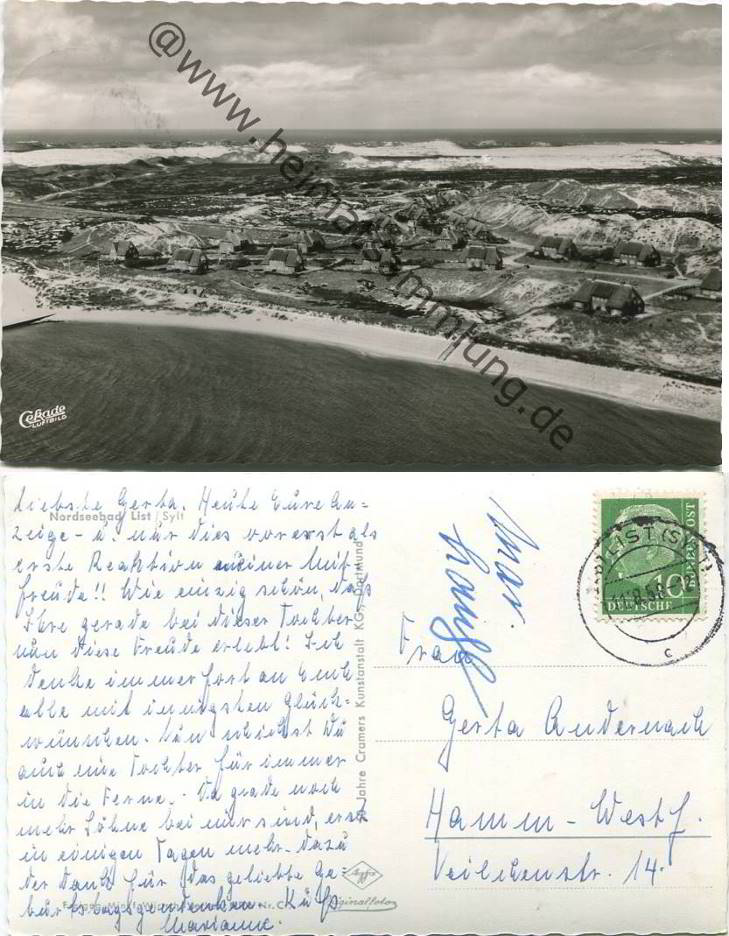 @www.heimatsammlung.de
Cekade
LUFTBILD
Liebste Gerta. Heute Eure An=
Nordseebad List / Sylt
zeige - u. nur dies vorerst als
erste Reaktion meiner Mit=
freude!! Wie einzig schön, daß
Ihr gerade bei dieser Tochter
nun diese Freude erlebt! Ich
denke immerfort an Euch
alle mit innigsten Glück=
wünschen. Nun schickst Du
auch eine Tochter für immer
in die Ferne. - Da grade noch
mehr Söhne bei mir sind, erst
in einigen Tagen mehr. dazu
der Dank für das geliebte Ge=
burtstagsgedenken. Kuß
Marianne.
Jahre Cramers Kunstanstalt KG, Dortmund
Agfa
Originalfoto
LIST (SYLT)
c
DEUTSCHE
BUNDESPOST
10
Frau
Gerta Andernach
Hamm - Westf.
Veilchenstr. 14.